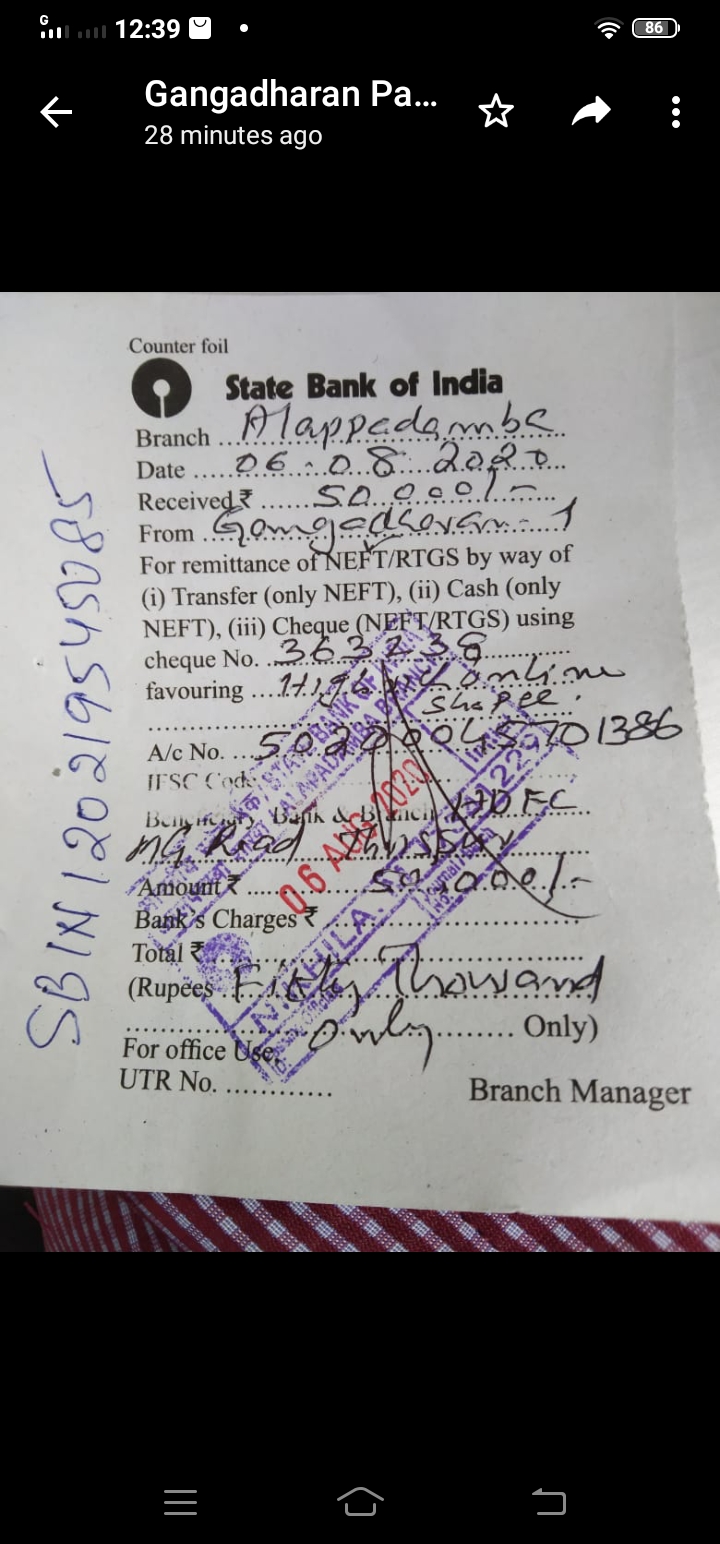 G
12:39
86
Gangadharan Pa...
28 minutes ago
Counter foil
State Bank of India
Branch Alappadamba
Date 06.08.2020
Received ₹ 50,000/-
From Gangadharan
For remittance of NEFT/RTGS by way of
(i) Transfer (only NEFT), (ii) Cash (only
NEFT), (iii) Cheque (NEFT/RTGS) using
cheque No. 363238
favouring online
Shopee.
A/c No.
IFSC Code
Beneficiary Bank & Branch HDFC
MG Road Thrissur
Amount ₹ 50,000/-
Bank's Charges ₹
Total ₹
(Rupees Fifty Thousand
Only Only)
For office Use
UTR No.
Branch Manager
06 AUG 2020
STATE BANK OF INDIA
NIKHILA